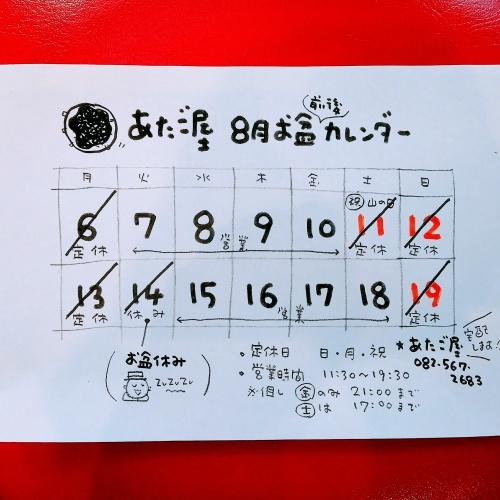 あたご屋 8月お盆前後カレンダー
月 火 水 木 金 土 日
㊗山の日
6 7 8 9 10 11 12
定休 営業 定休 定休
13 14 15 16 17 18 19
定休 休み 営業 定休
お盆休み
ZuZuZu
・定休日 日・月・祝
・営業時間 11:30〜19:30
※但し ㊎のみ 21:00まで
㊏は 17:00まで
★あたご屋
082-567-2683
します!